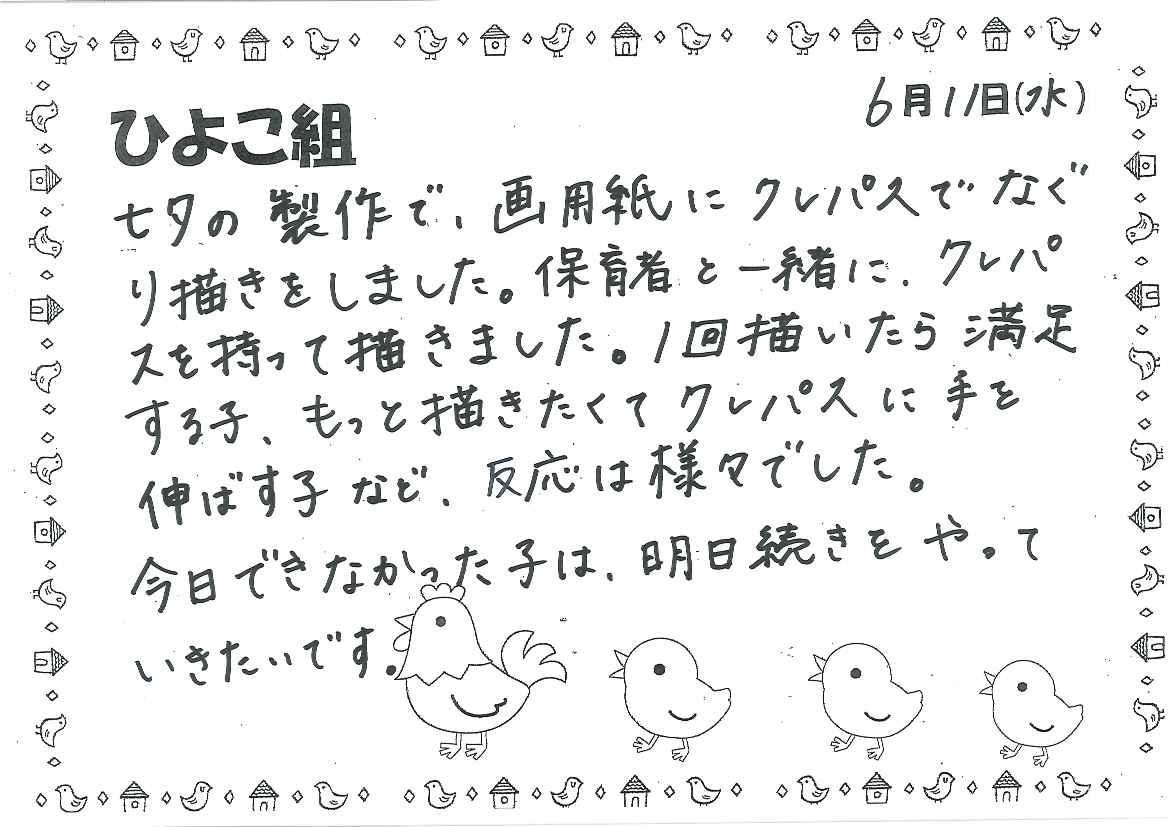 6月11日(水)
ひよこ組
七夕の製作で、画用紙にクレパスでなぐ
り描きをしました。保育者と一緒に、クレパ
スを持って描きました。1回描いたら満足
する子、もっと描きたくてクレパスに手を
伸ばす子など、反応は様々でした。
今日できなかった子は、明日続きをやって
いきたいです。